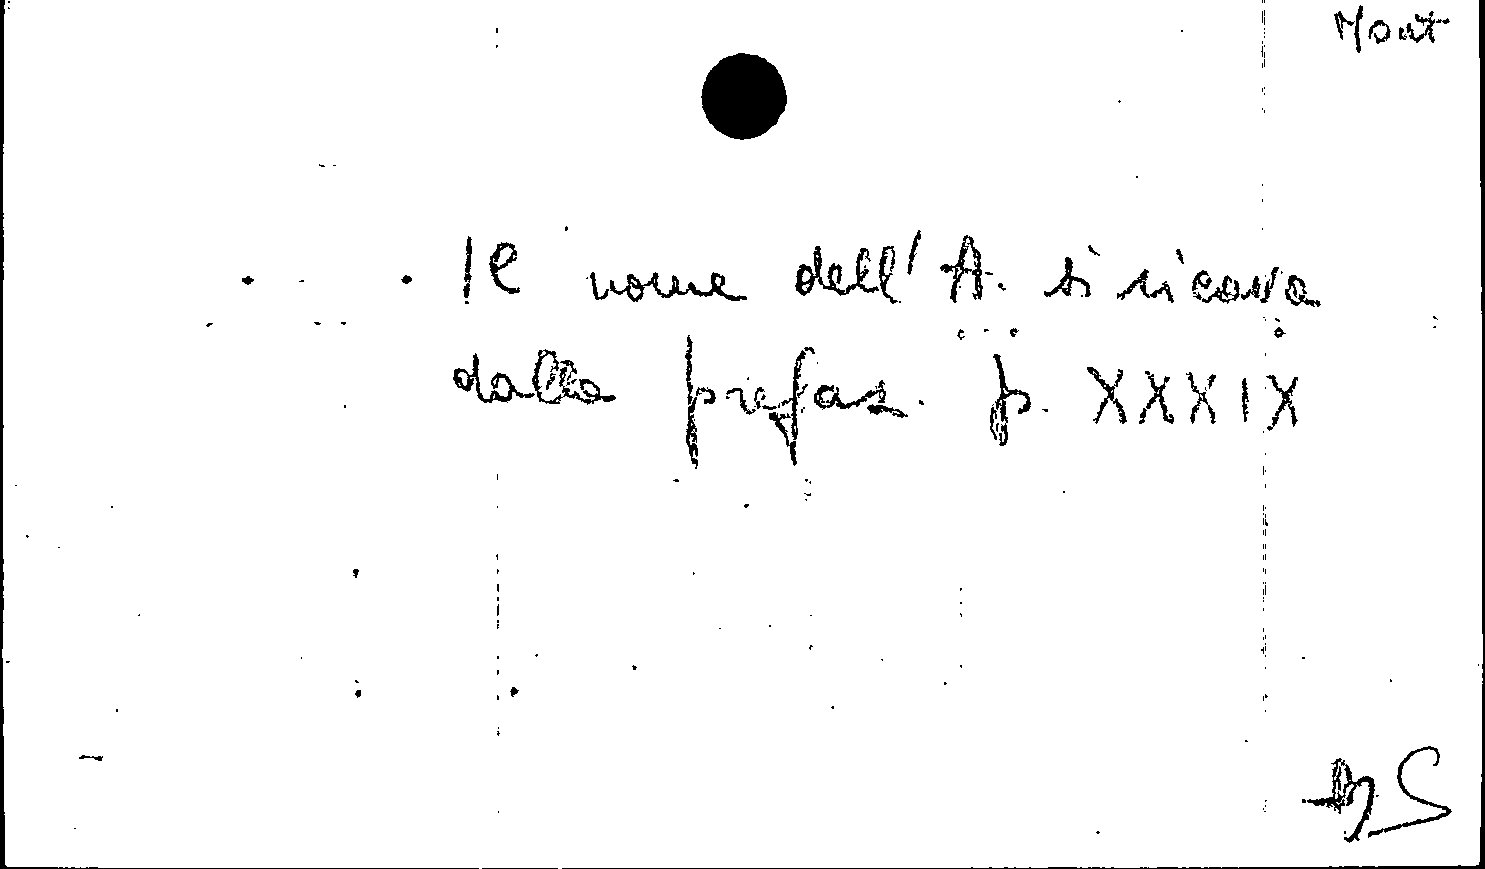 Mont
Il nome dell'A. si ricava
dalla prefaz. p. XXXIX